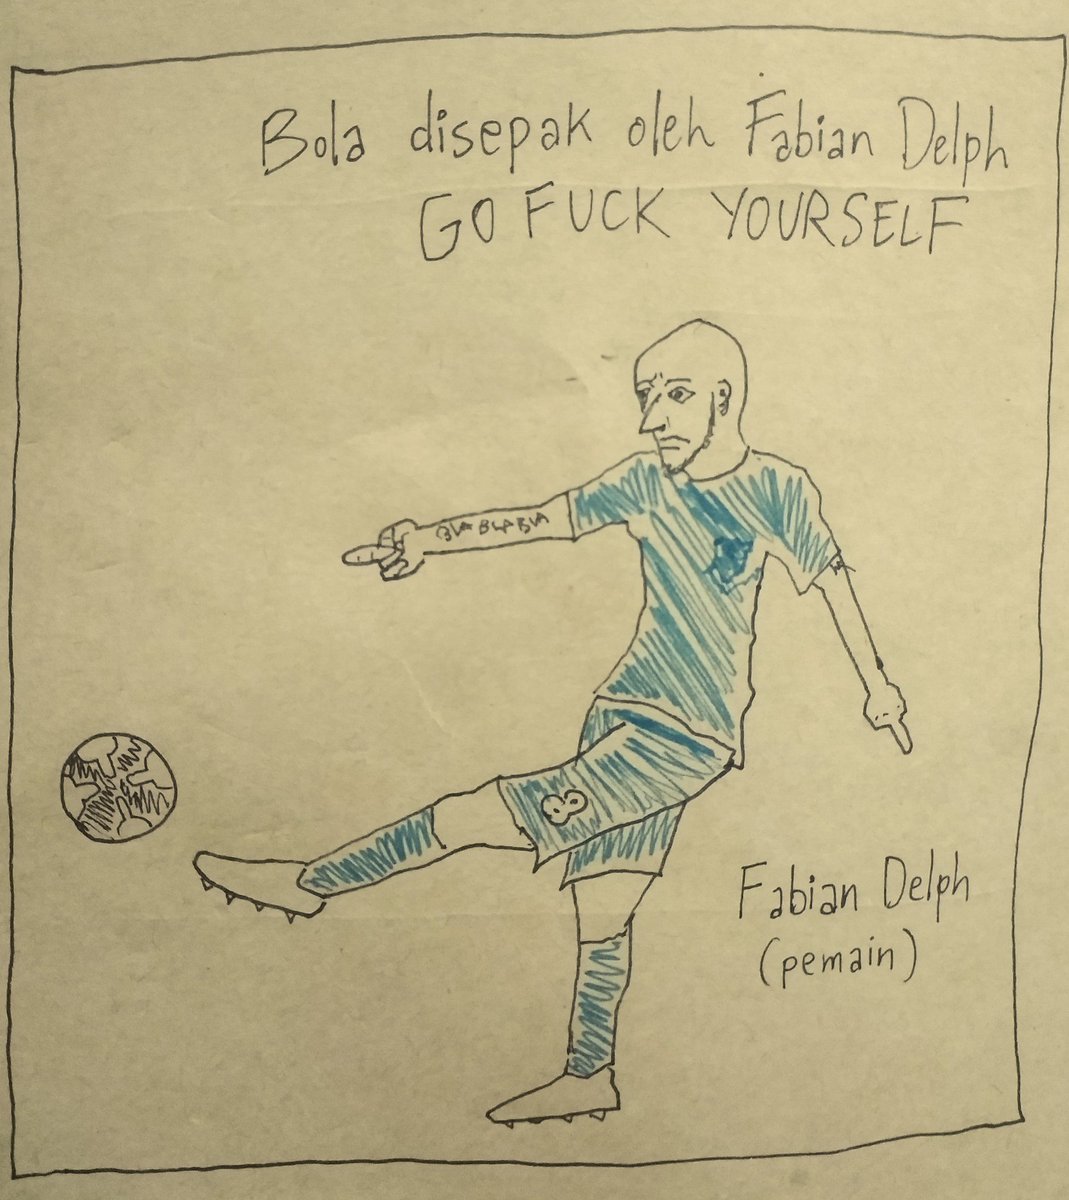 Bola disepak oleh Fabian Delph
GO FUCK YOURSELF
BLA BLA BLA
8
Fabian Delph
(pemain)